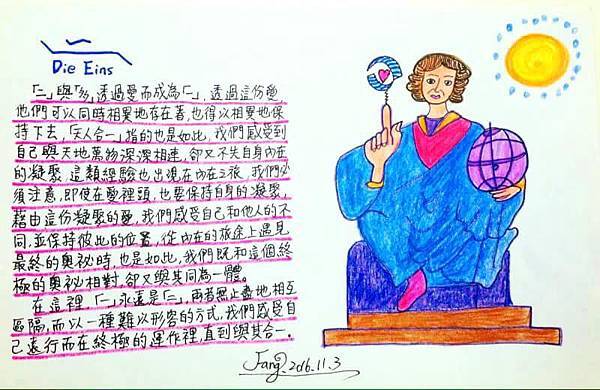 Die Eins
「二」與「多」透過愛而成為「一」，透過這份愛
他們可以同時相異地存在著，也得以相異地保
持下去，「天人合一」指的也是如此，我們感受到
自己與天地萬物深深相連，卻又不失自身內在
的凝聚，這類經驗也出現在內在之旅，我們必
須注意，即使在愛裡頭，也要保持自身的凝聚，
藉由這份凝聚的愛，我們感受自己和他人的不
同，並保持彼此的位置，從內在的旅途上遇見
最終的奧祕時，也是如此，我們既和這個終
極的奧祕相對，卻又與其同為一體。
在這裡「一」永遠是「一」，兩者無止盡地相互
區隔，而以一種難以形容的方式，我們感受自
己遠行而在終極的運作裡，直到與其合一。
Fang. 2016.11.3